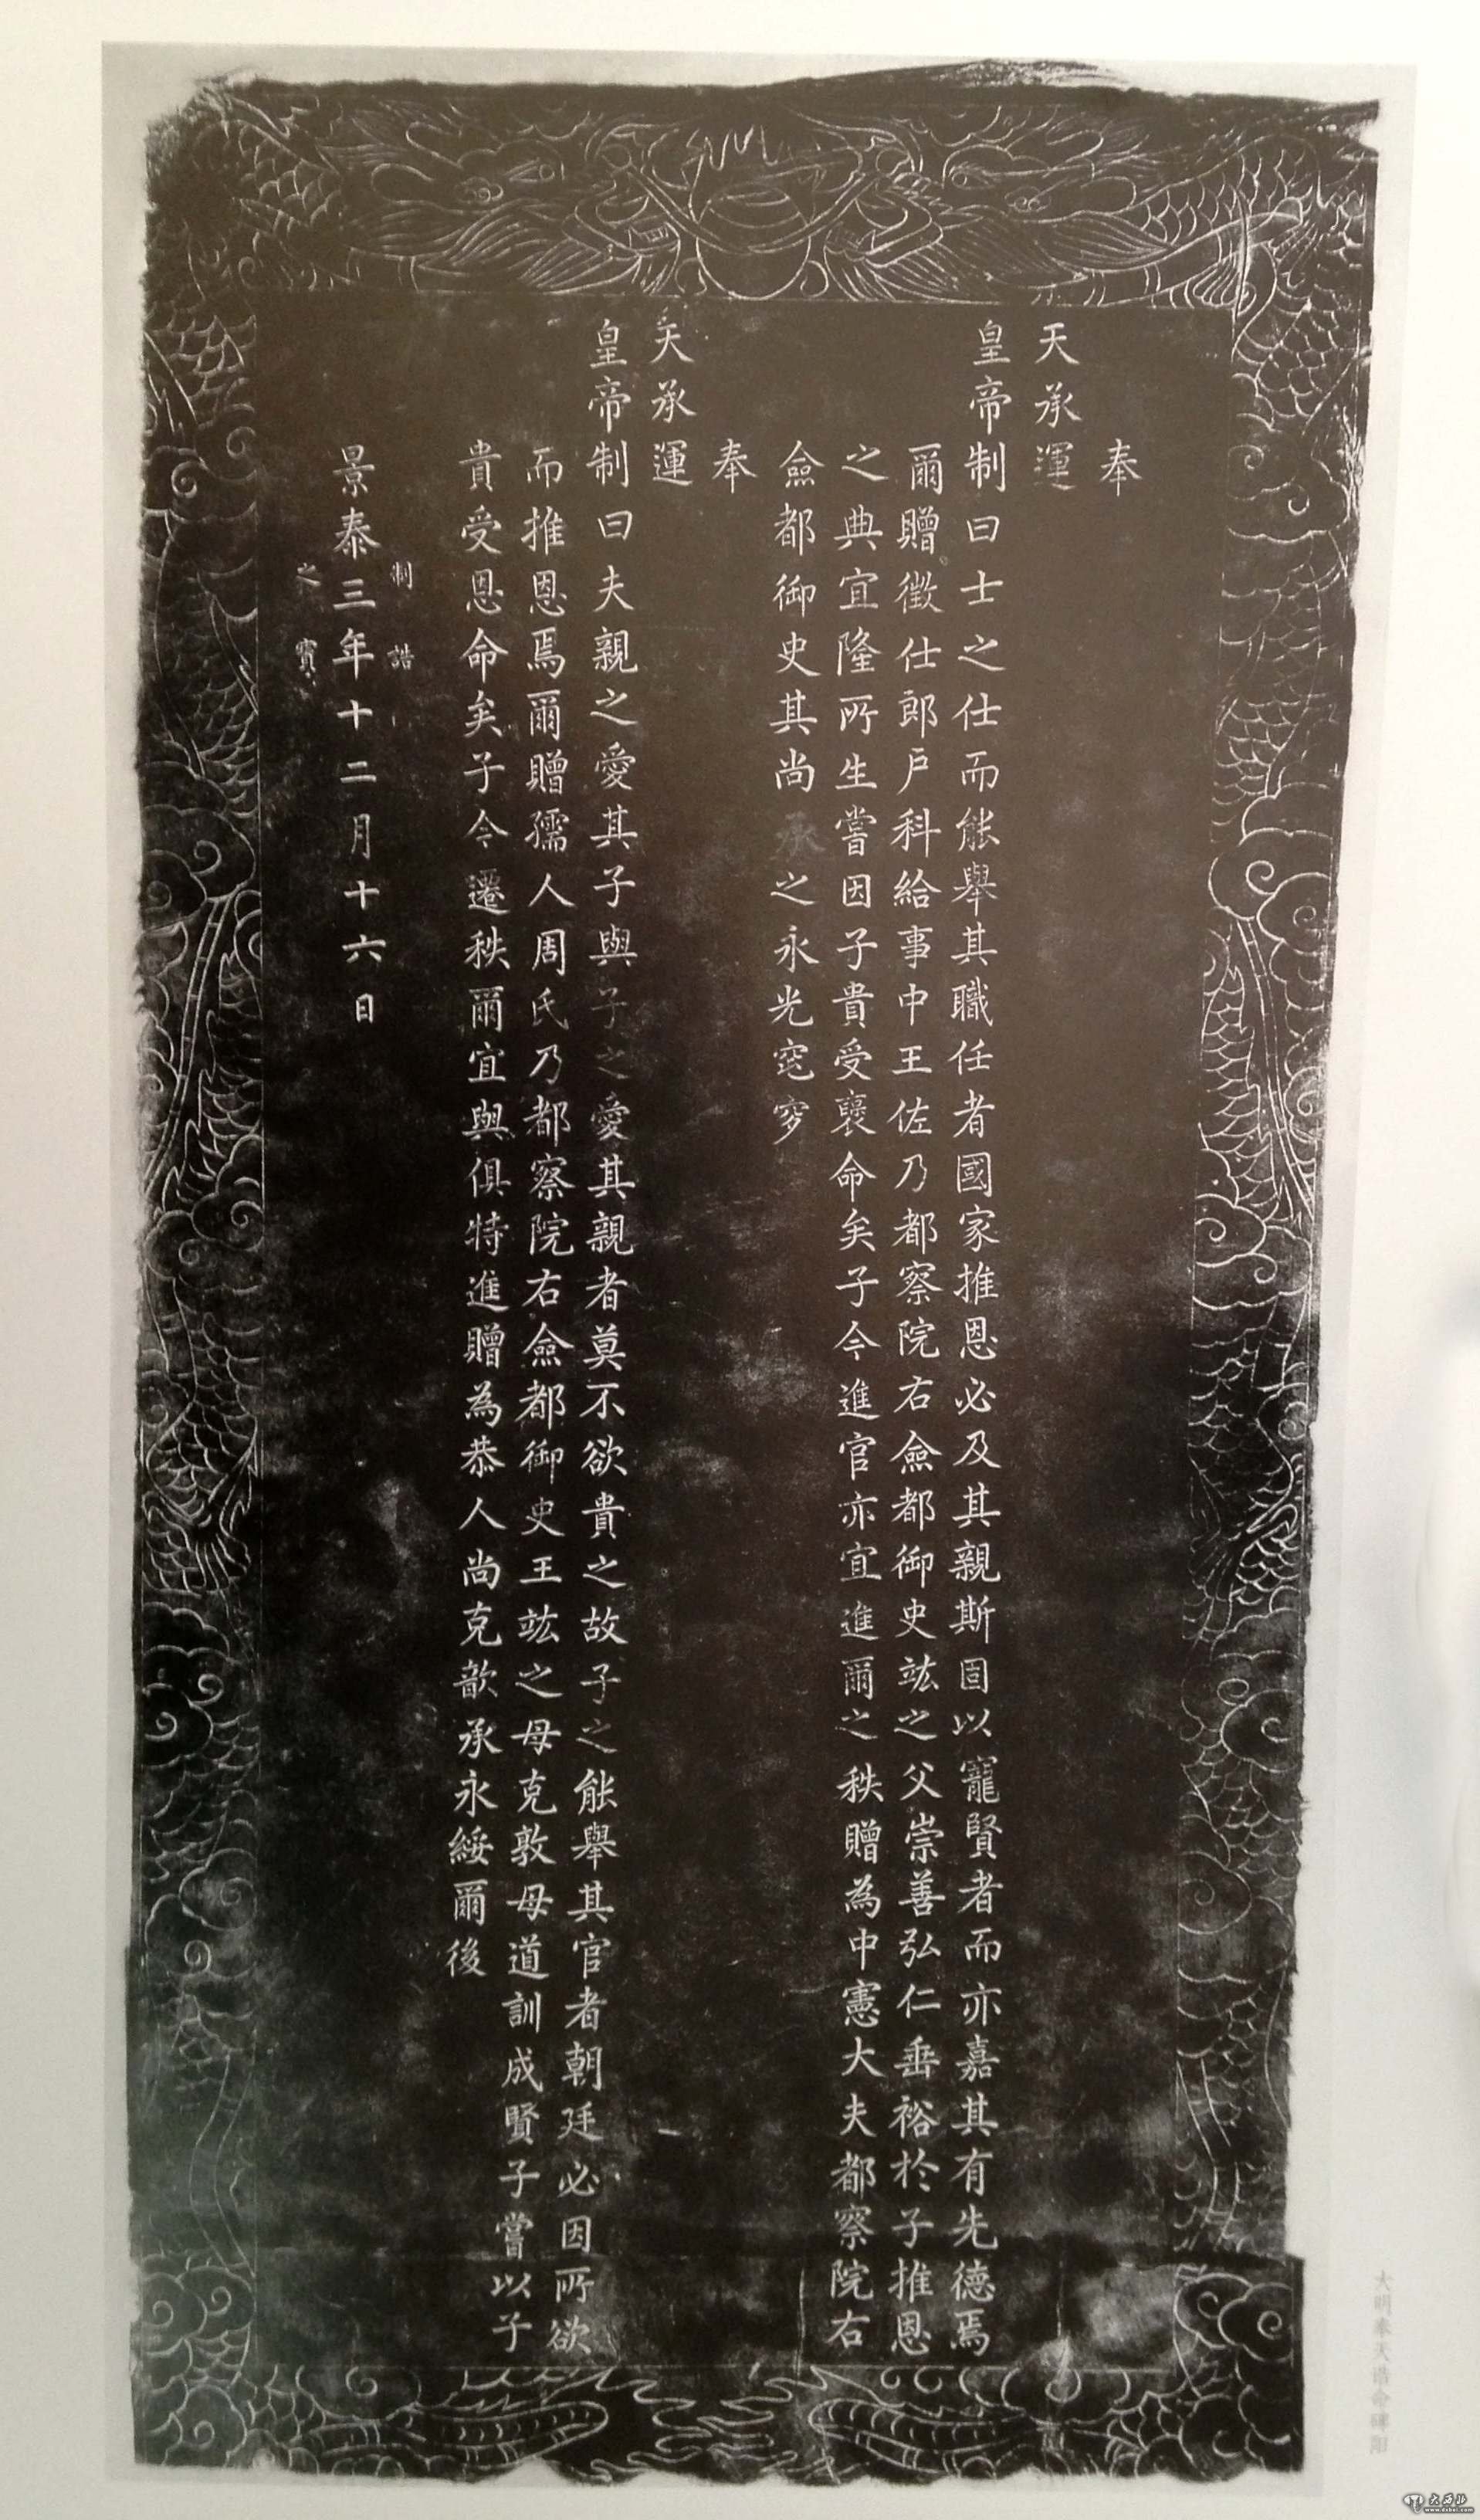 奉
天承運
皇帝制曰士之仕而能舉其職任者國家推恩必及其親斯固以寵賢者而亦嘉其有先德焉
爾贈徵仕郎戶科給事中王佐乃都察院右僉都御史竑之父崇善弘仁垂裕於子推恩
之典宜隆所生嘗因子貴受褒命矣子今進官亦宜進爾之秩贈為中憲大夫都察院右
僉都御史其尚承之永光窀穸
奉
天承運
皇帝制曰夫親之愛其子與子之愛其親者莫不欲貴之故子之能舉其官者朝廷必因所欲
而推恩焉爾贈孺人周氏乃都察院右僉都御史王竑之母克敦母道訓成賢子嘗以子
貴受恩命矣子今遷秩爾宜與俱特進贈為恭人尚克歆承永綏爾後
制誥
景泰三年十二月十六日
之寶
大明奉天誥命碑陽
大西北
www.dxbei.com